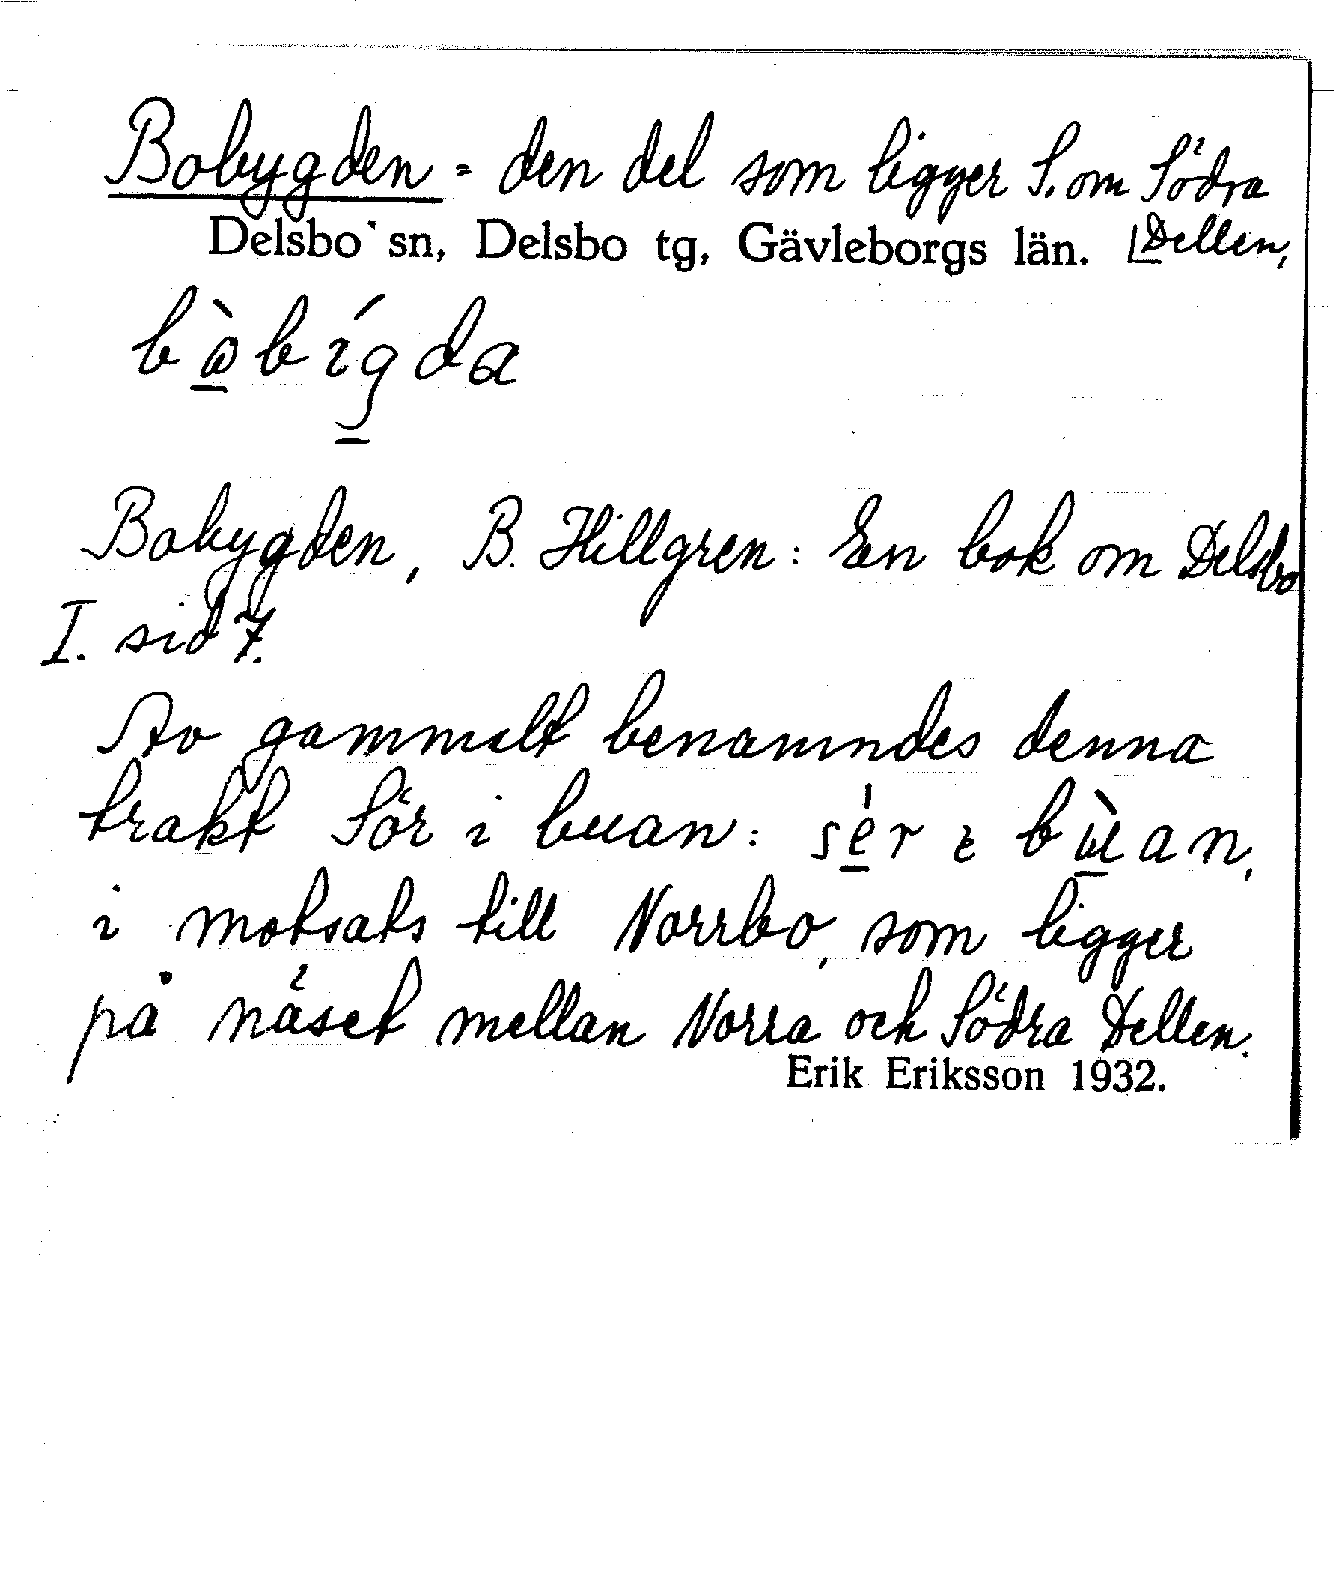 Bobygden = den del som ligger S. om Södra
Delsbo sn, Delsbo tg, Gävleborgs län. Dellen,
bòbígda
Bobygden, B. Hillgren: En bok om Delsbo
I. sid 7.
Av gammalt benämndes denna
trakt Sör i buan: sér ı bùan,
i motsats till Norrbo, som ligger
på näset mellan Norra och Södra Dellen.
Erik Eriksson 1932.